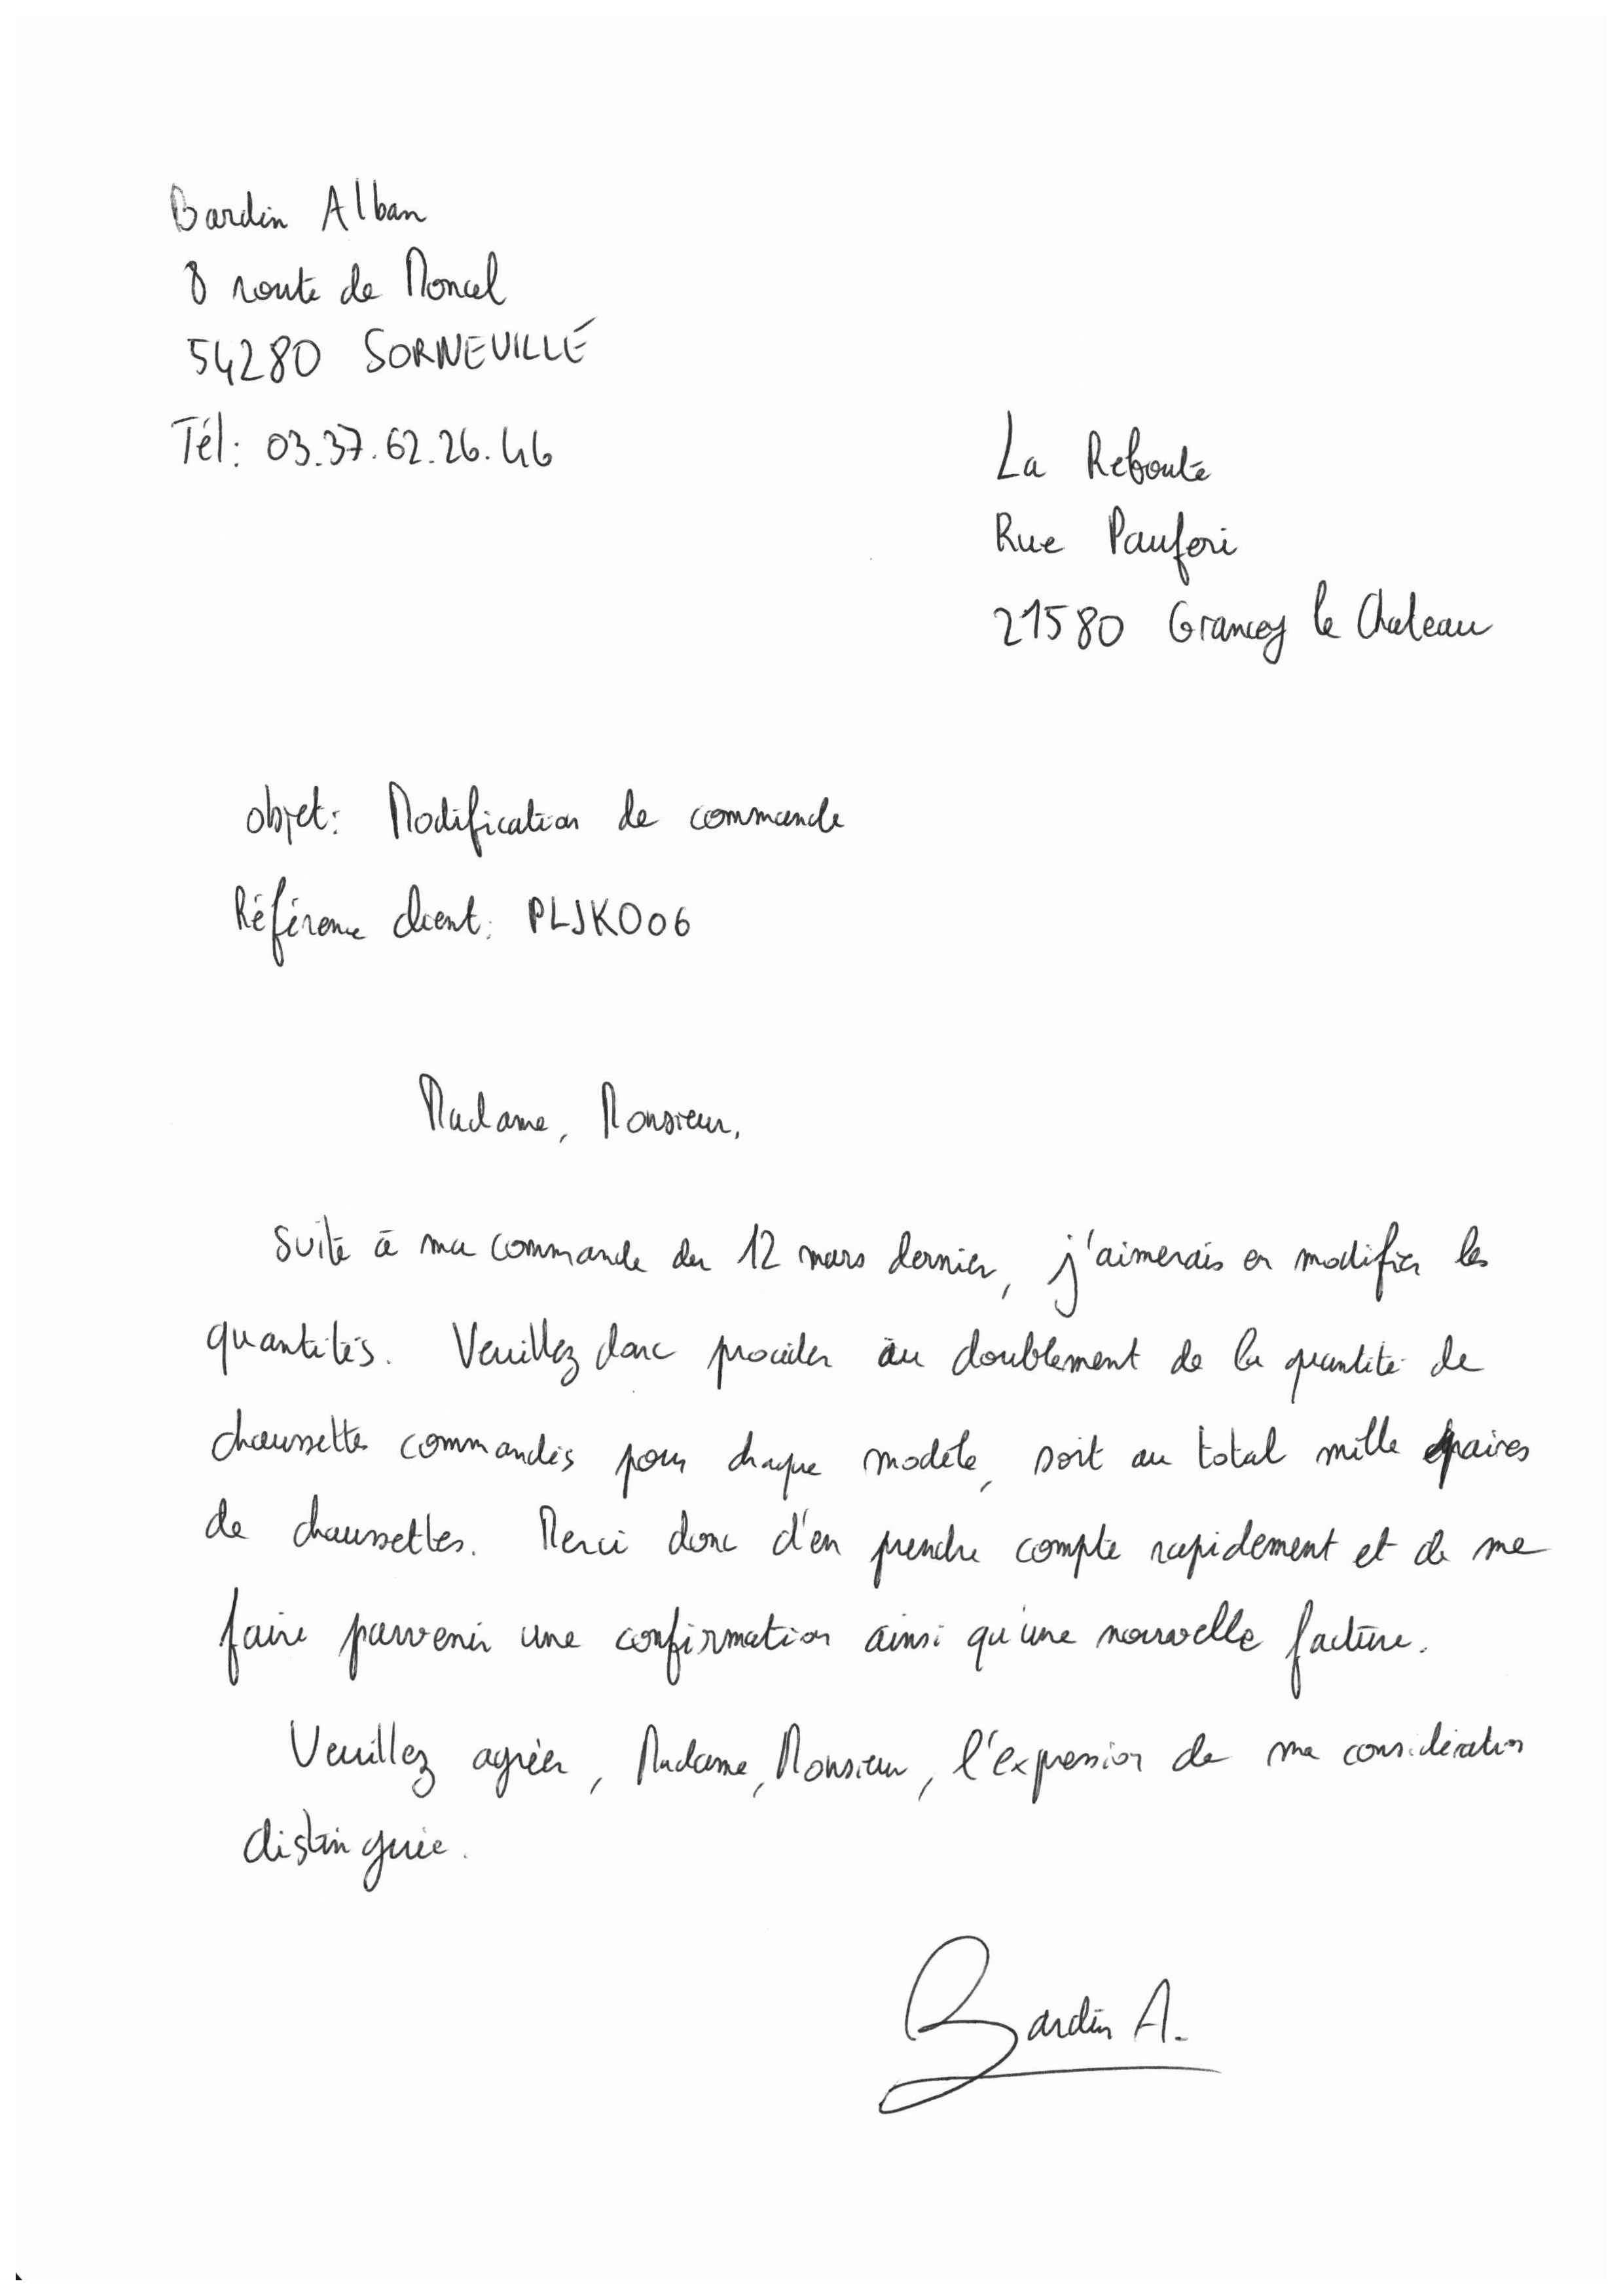 Bardin Alban
8 route de Moncel
54280 SORNEVILLE
Tél: 03.37.62.26.46
La Reboute
Rue Pauferi
21580 Grancey le Chateau
objet: Modification de commande
Référence client: PLJK006
Madame, Monsieur,
Suite à ma commande du 12 mars dernier, j'aimerais en modifier les
quantités. Veuillez donc procéder au doublement de la quantité de
chaussettes commandés pour chaque modèle, soit au total mille paires
de chaussettes. Merci donc d'en prendre compte rapidement et de me
faire parvenir une confirmation ainsi qu'une nouvelle facture.
Veuillez agréer, Madame, Monsieur, l'expression de ma considération
distinguée.
Bardin A.